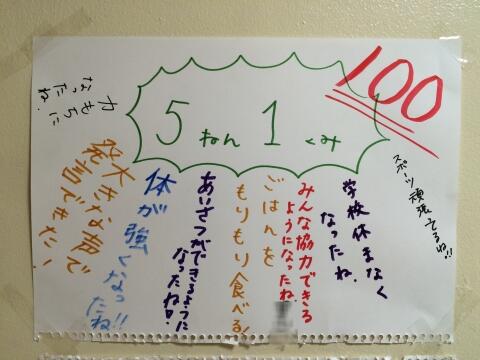 5ねん1くみ
100
スポーツ頑張てるね!!
学校休まなく
なったね。
みんな協力できる
ようになったね。
ごはんを
もりもり食べる!
あいさつができるように
なったね!
体が強くなったね!!
大きな声で
発言できた!
力もちに
なったね!